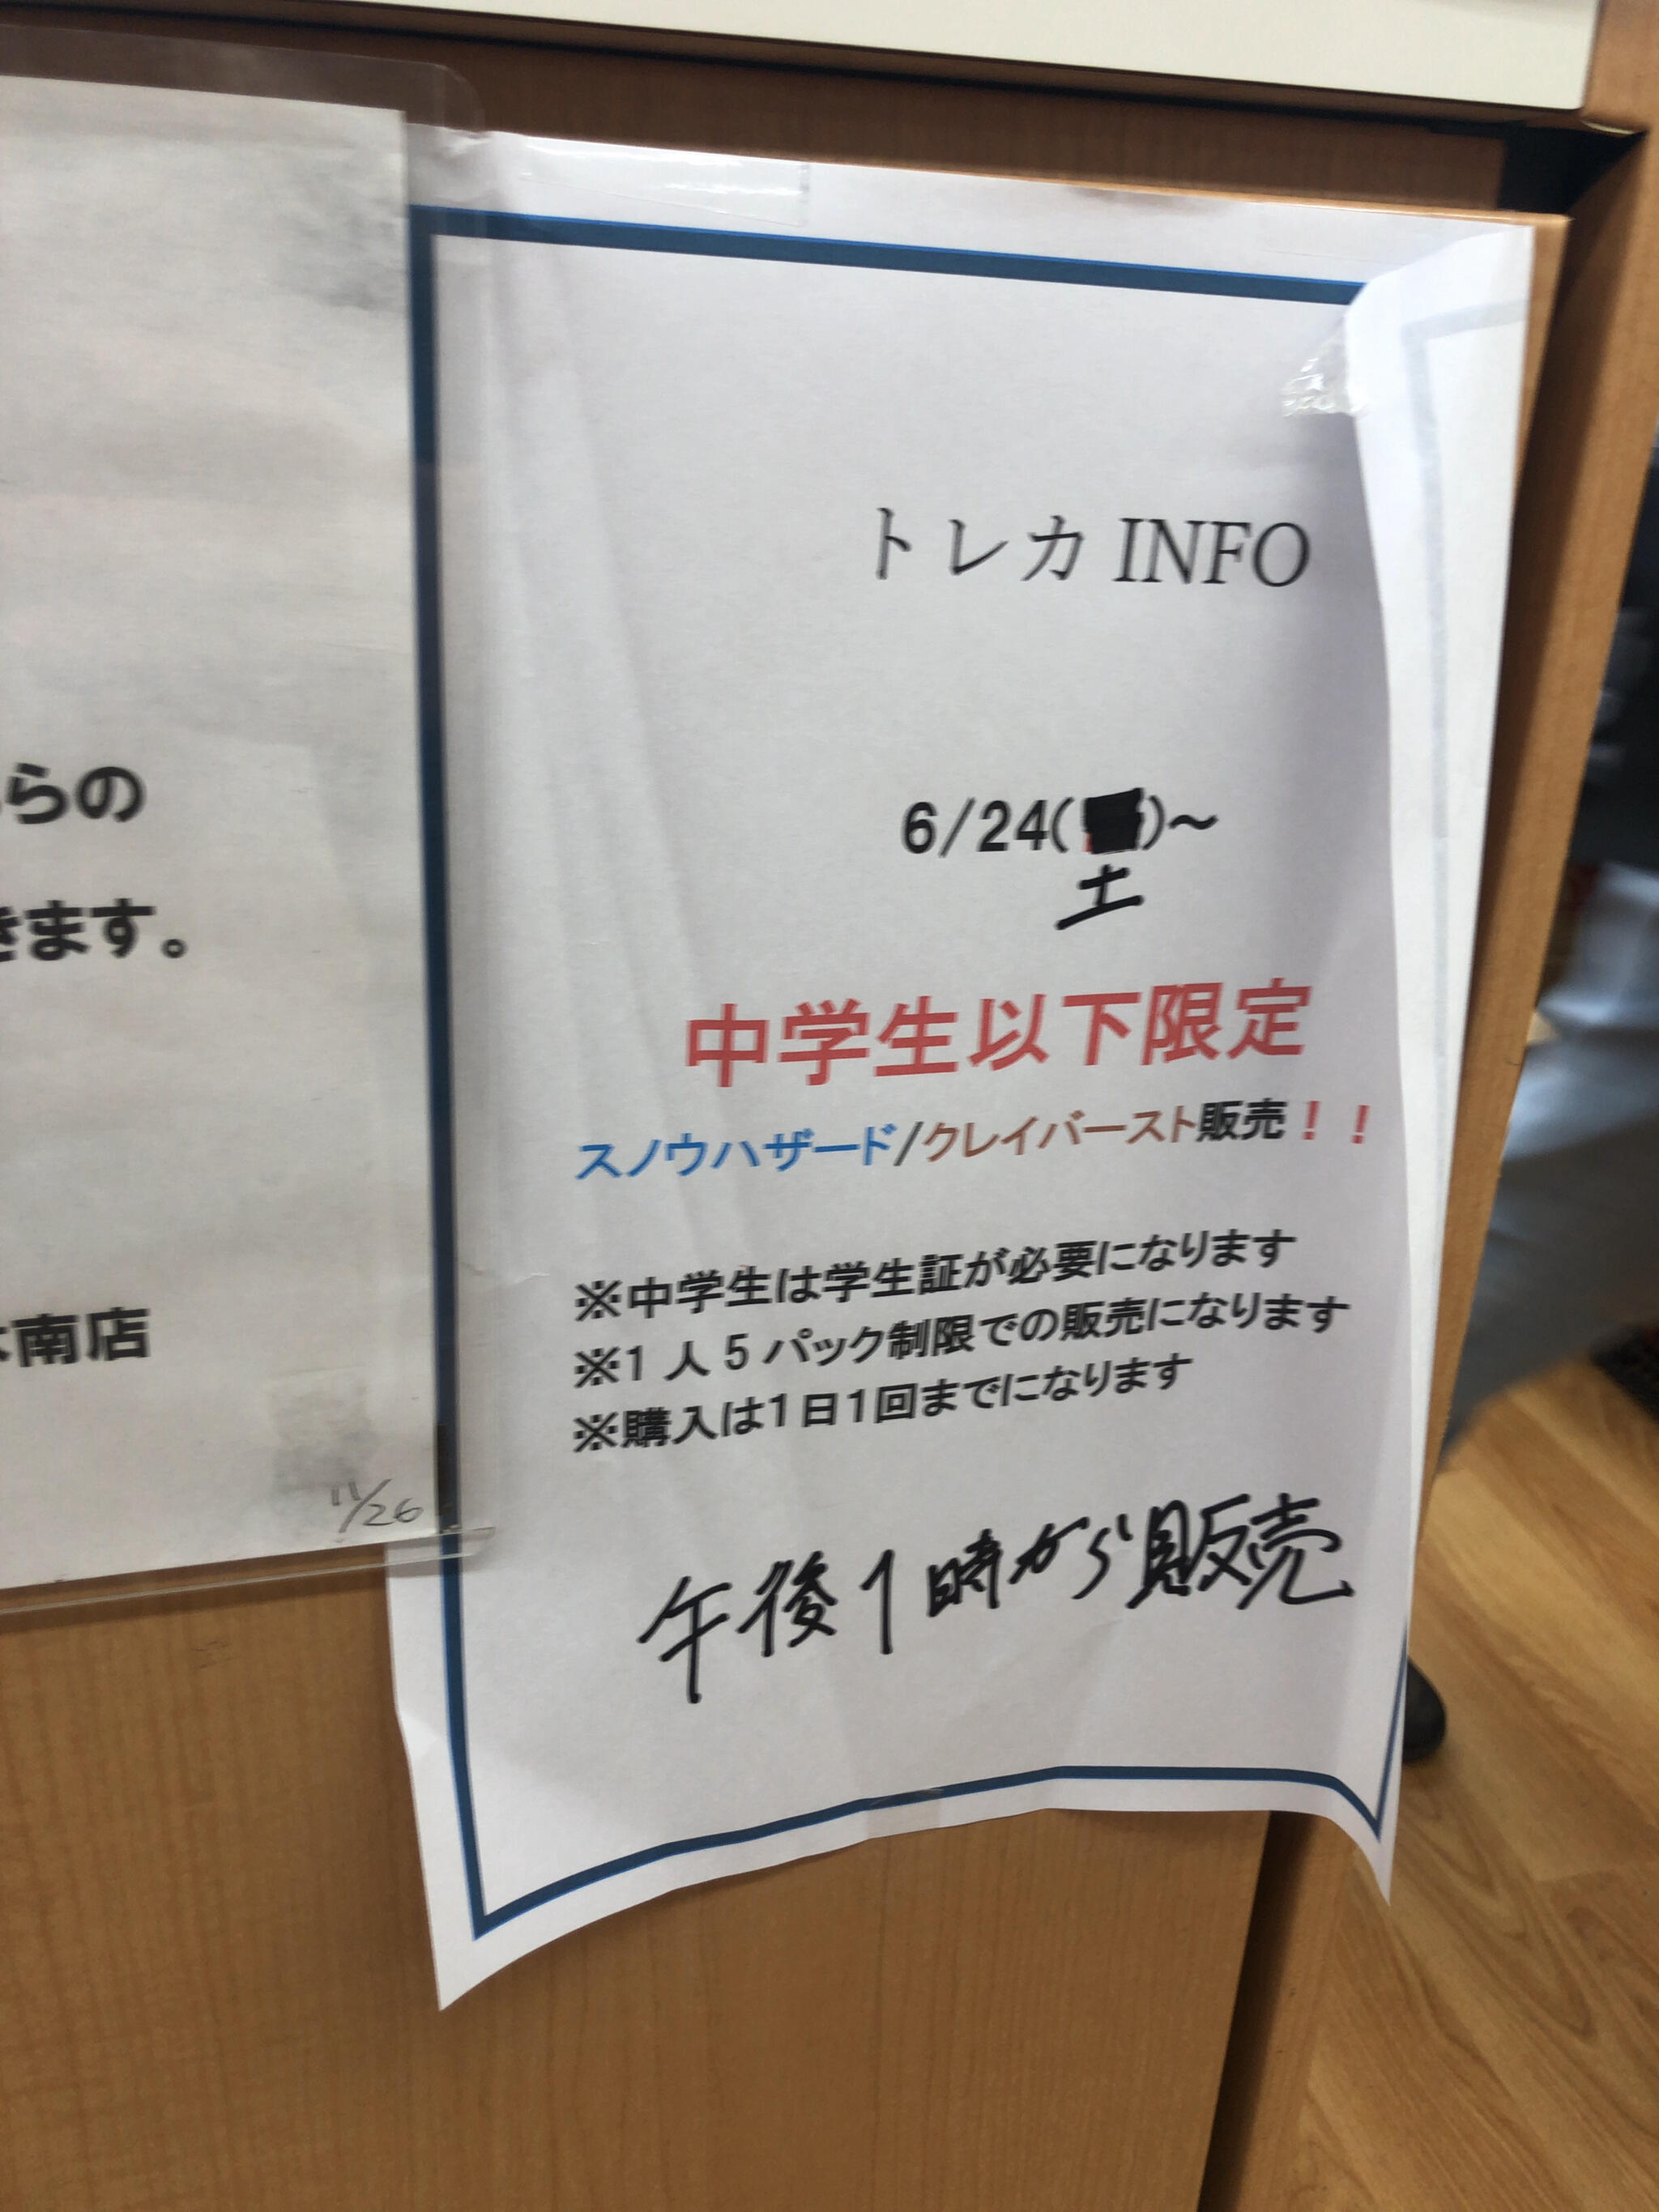 らの
きます。
南店
11/26
トレカ INFO
6/24( )～
土
中学生以下限定
スノウハザード/クレイバースト販売！！
※中学生は学生証が必要になります
※1人5パック制限での販売になります
※購入は1日1回までになります
午後1時から販売